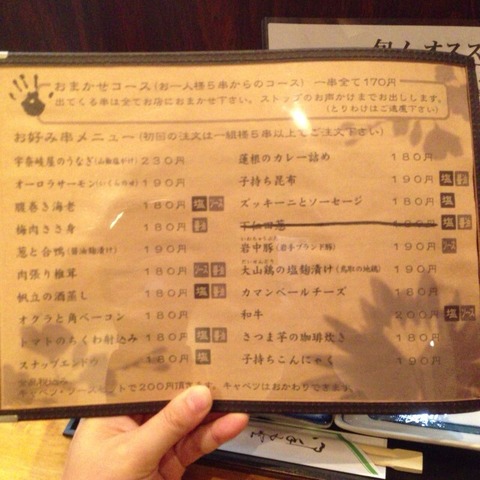 おまかせコース(お一人様5串からのコース) 一串全て170円
出てくる串は全てお店におまかせ下さい。ストップのお声かけまでお出しします。
(とりわけはご遠慮下さい)
お好み串メニュー(初回の注文は一組様5串以上でご注文下さい)
宇奈岐屋のうなぎ 230円
オーロラサーモン(いくら the け) 190円
腹巻き海老 180円 塩 ソース
梅肉ささ身 180円
葱と合鴨(醤油麹漬け) 190円
肉張り椎茸 180円 ソース
帆立の酒蒸し 180円 塩
オクラと角ベーコン 180円
トマトのちくわ射込み 180円 塩
スナップエンドウ 180円 塩
蓮根のカレー詰め 180円
子持ち昆布 190円 塩
ズッキーニとソーセージ 180円
下仁田葱 180円 塩
いわちゅうぶた
岩中豚(岩手ブランド豚) 190円 ソース
だいせんどり
大山鶏の塩麹漬け(鳥取の地鶏) 190円
カマンベールチーズ 180円
和牛 200円 塩 ソース
さつま芋の珈琲炊き 180円
子持ちこんにゃく 190円
キャベツ・ソースセットで200円頂きます。キャベツはおかわりできます。
旬 オスス